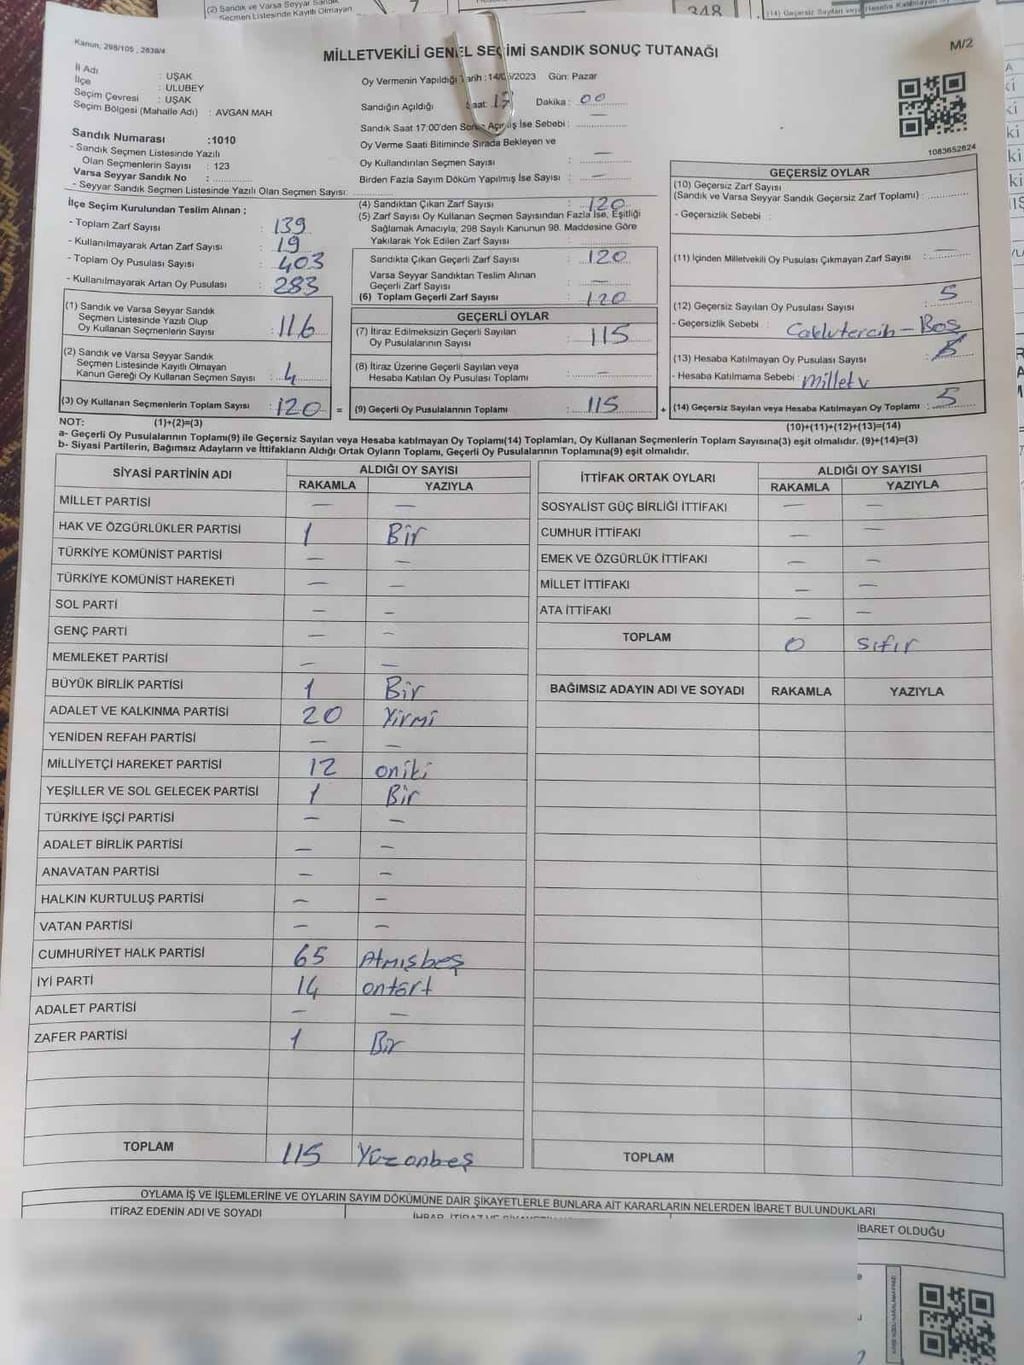 (2) Sandık ve Varsa Seyyar Sandık
Seçmen Listesinde Kayıtlı Olmayan
7
348
(14) Geçersiz Sayılan veya Hesaba
Kanun, 298/105 , 2839/4
MİLLETVEKİLİ GENEL SEÇİMİ SANDIK SONUÇ TUTANAĞI
M/2
İl Adı : UŞAK
İlçe : ULUBEY
Seçim Çevresi : UŞAK
Seçim Bölgesi (Mahalle Adı) : AVGAN MAH
Sandık Numarası :1010
- Sandık Seçmen Listesinde Yazılı
Olan Seçmenlerin Sayısı : 123
Varsa Seyyar Sandık No :
- Seyyar Sandık Seçmen Listesinde Yazılı Olan Seçmen Sayısı:
Oy Vermenin Yapıldığı Tarih :14/05/2023 Gün: Pazar
Sandığın Açıldığı Saat: 17 Dakika : 00
Sandık Saat 17:00'den Sonra Açılmış İse Sebebi : —
Oy Verme Saati Bitiminde Sırada Bekleyen ve
Oy Kullandırılan Seçmen Sayısı : —
Birden Fazla Sayım Döküm Yapılmış İse Sayısı : —
1083652824
İlçe Seçim Kurulundan Teslim Alınan ;
- Toplam Zarf Sayısı : 139
- Kullanılmayarak Artan Zarf Sayısı : 19
- Toplam Oy Pusulası Sayısı : 403
- Kullanılmayarak Artan Oy Pusulası : 283
(1) Sandık ve Varsa Seyyar Sandık
Seçmen Listesinde Yazılı Olup
Oy Kullanan Seçmenlerin Sayısı : 116
(2) Sandık ve Varsa Seyyar Sandık
Seçmen Listesinde Kayıtlı Olmayan
Kanun Gereği Oy Kullanan Seçmen Sayısı : 4
(3) Oy Kullanan Seçmenlerin Toplam Sayısı : 120
(4) Sandıktan Çıkan Zarf Sayısı : 120
(5) Zarf Sayısı Oy Kullanan Seçmen Sayısından Fazla İse, Eşitliği
Sağlamak Amacıyla; 298 Sayılı Kanunun 98. Maddesine Göre
Yakılarak Yok Edilen Zarf Sayısı :
Sandıkta Çıkan Geçerli Zarf Sayısı : 120
Varsa Seyyar Sandıktan Teslim Alınan
Geçerli Zarf Sayısı : —
(6) Toplam Geçerli Zarf Sayısı : 120
GEÇERLİ OYLAR
(7) İtiraz Edilmeksizin Geçerli Sayılan
Oy Pusulalarının Sayısı : 115
(8) İtiraz Üzerine Geçerli Sayılan veya
Hesaba Katılan Oy Pusulası Toplamı : —
= (9) Geçerli Oy Pusulalarının Toplamı : 115
GEÇERSİZ OYLAR
(10) Geçersiz Zarf Sayısı
(Sandık ve Varsa Seyyar Sandık Geçersiz Zarf Toplamı) :
- Geçersizlik Sebebi :
(11) İçinden Milletvekili Oy Pusulası Çıkmayan Zarf Sayısı : —
(12) Geçersiz Sayılan Oy Pusulası Sayısı : 5
- Geçersizlik Sebebi : Coklutercih - Boş
(13) Hesaba Katılmayan Oy Pusulası Sayısı :
- Hesaba Katılmama Sebebi : Millet v
+ (14) Geçersiz Sayılan veya Hesaba Katılmayan Oy Toplamı : 5
NOT: (1)+(2)=(3)
(10)+(11)+(12)+(13)=(14)
a- Geçerli Oy Pusulalarının Toplamı(9) ile Geçersiz Sayılan veya Hesaba katılmayan Oy Toplamı(14) Toplamları, Oy Kullanan Seçmenlerin Toplam Sayısına(3) eşit olmalıdır. (9)+(14)=(3)
b- Siyasi Partilerin, Bağımsız Adayların ve İttifakların Aldığı Ortak Oyların Toplamı, Geçerli Oy Pusulalarının Toplamına(9) eşit olmalıdır.
SİYASİ PARTİNİN ADI ALDIĞI OY SAYISI
RAKAMLA YAZIYLA
MİLLET PARTİSİ — —
HAK VE ÖZGÜRLÜKLER PARTİSİ 1 Bir
TÜRKİYE KOMÜNİST PARTİSİ — —
TÜRKİYE KOMÜNİST HAREKETİ — —
SOL PARTİ — —
GENÇ PARTİ — —
MEMLEKET PARTİSİ — —
BÜYÜK BİRLİK PARTİSİ 1 Bir
ADALET VE KALKINMA PARTİSİ 20 Yirmi
YENİDEN REFAH PARTİSİ — —
MİLLİYETÇİ HAREKET PARTİSİ 12 oniki
YEŞİLLER VE SOL GELECEK PARTİSİ 1 Bir
TÜRKİYE İŞÇİ PARTİSİ — —
ADALET BİRLİK PARTİSİ — —
ANAVATAN PARTİSİ — —
HALKIN KURTULUŞ PARTİSİ — —
VATAN PARTİSİ — —
CUMHURİYET HALK PARTİSİ 65 Atmışbeş
İYİ PARTİ 14 ontört
ADALET PARTİSİ — —
ZAFER PARTİSİ 1 Bir
TOPLAM 115 Yüzonbeş
İTTİFAK ORTAK OYLARI ALDIĞI OY SAYISI
RAKAMLA YAZIYLA
SOSYALİST GÜÇ BİRLİĞİ İTTİFAKI — —
CUMHUR İTTİFAKI — —
EMEK VE ÖZGÜRLÜK İTTİFAKI — —
MİLLET İTTİFAKI — —
ATA İTTİFAKI — —
TOPLAM 0 Sıfır
BAĞIMSIZ ADAYIN ADI VE SOYADI RAKAMLA YAZIYLA
TOPLAM
OYLAMA İŞ VE İŞLEMLERİNE VE OYLARIN SAYIM DÖKÜMÜNE DAİR ŞİKAYETLERLE BUNLARA AİT KARARLARIN NELERDEN İBARET BULUNDUKLARI
İTİRAZ EDENİN ADI VE SOYADI
İBARET OLDUĞU